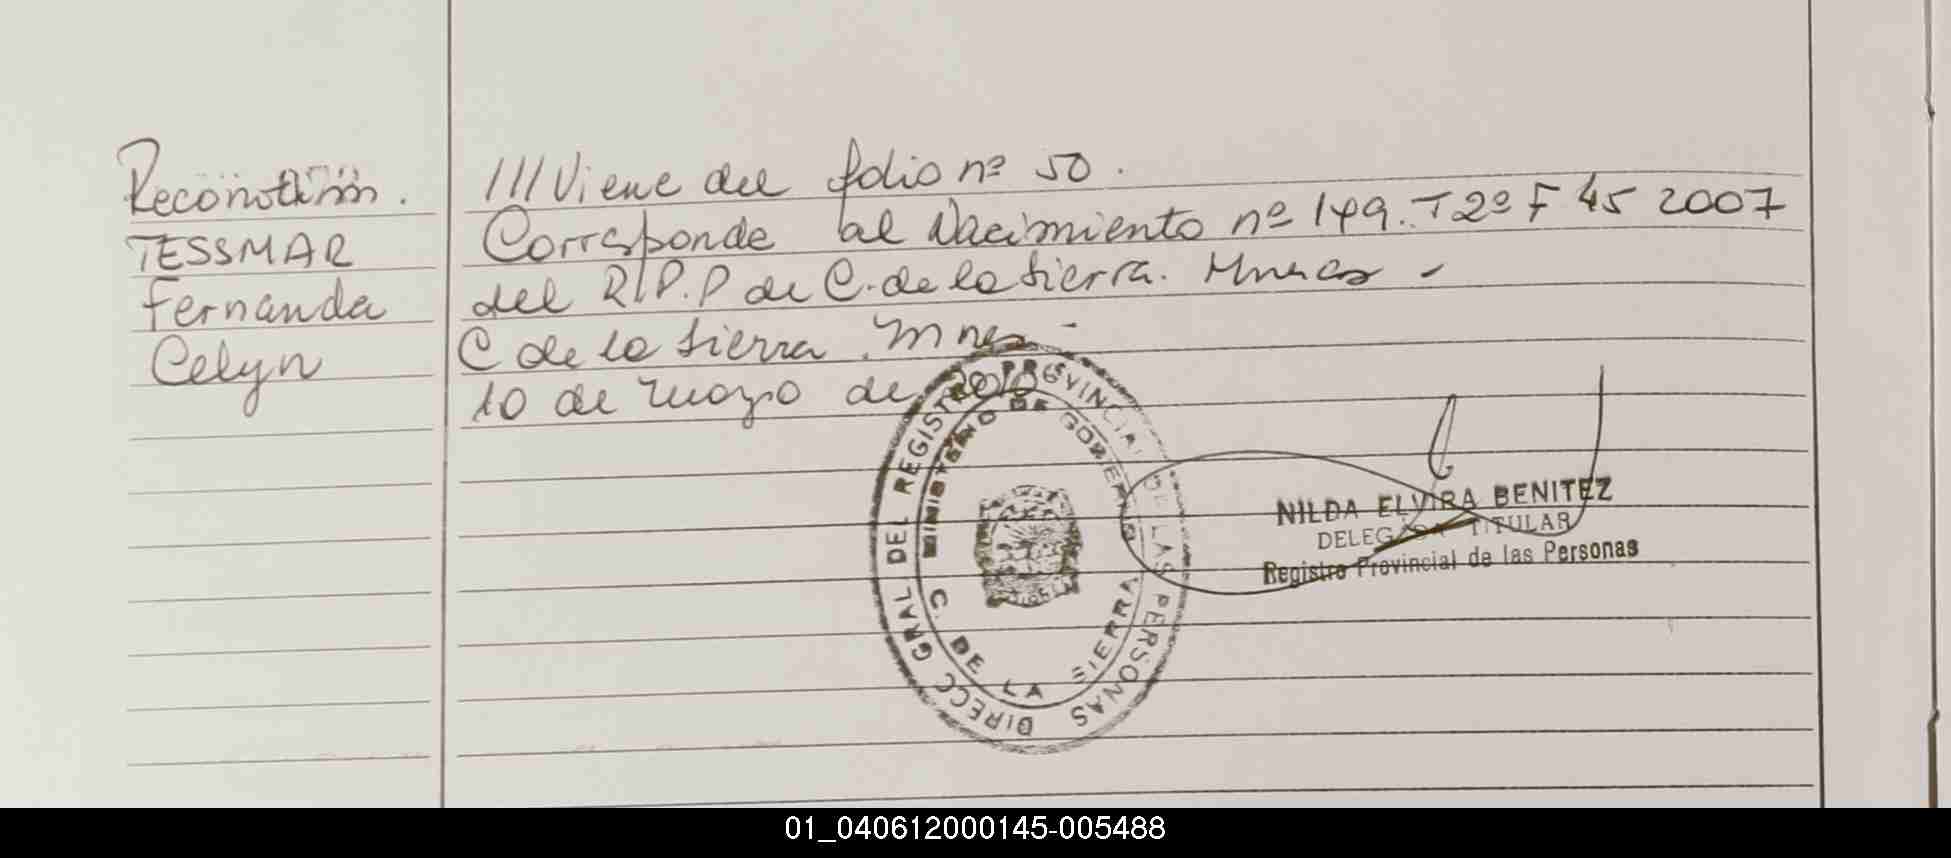 Reconocim.
TESSMAR
Fernanda
Celyn
///Viene del folio nº 50.
Corresponde al Nacimiento nº 149. T 2º F 45 2007
del R.P.P de C. de la Sierra.
C de la Sierra. Mnes -
10 de mayo de
DIRECC GRAL DEL REGISTRO PROVINCIAL DE LAS PERSONAS
MINISTERIO DE GOBIERNO
C. DE LA SIERRA
NILDA ELVIRA BENITEZ
DELEGADA TITULAR
Registro Provincial de las Personas
01_040612000145-005488